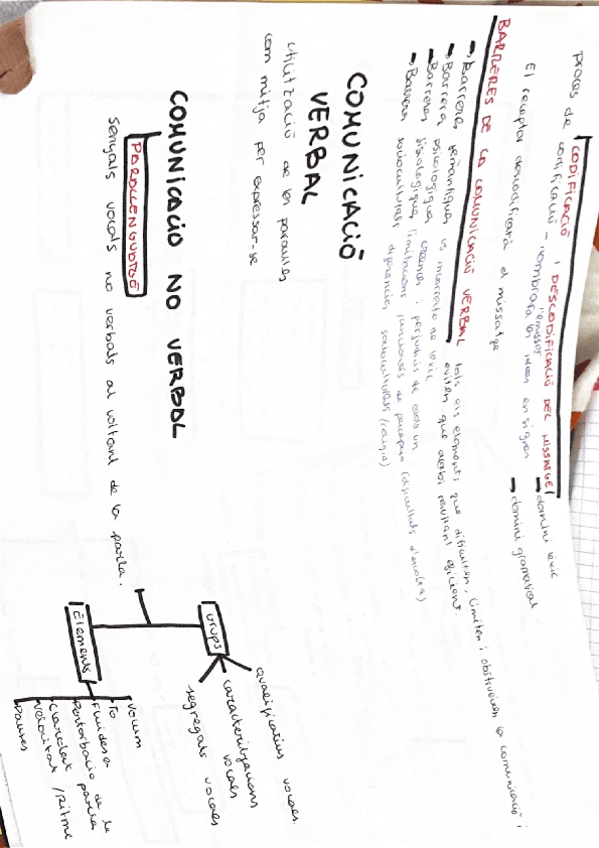 CODIFICACIÓ I DESCODIFICACIÓ DEL MISSATGE
procés de codificació - l'emissor nombrara les idees en signes
→ domini lèxic
→ domini gramatical
El receptor descodificarà el missatge
BARRERES DE LA COMUNICACIÓ VERBAL tots els elements que dificulten, limiten i obstrueixen la comunicació i
eviten que acabi resultant eficient
→ Barreres semàntiques ús incorrecte de lèxic
→ Barrera psicològiques creences i perjudicis de cada un
→ Barreres fisiològiques limitacions funcionals de percepció (dificultats d'escolta)
→ Barrera socioculturals diferències socioculturals (religió)
COMUNICACIÓ
VERBAL
Utilització de les paraules
com mitjà per expressar-se
COMUNICACIO NO VERBAL
PARALLENGUATGE
senyals vocals no verbals al voltant de la parla.
Grups
qualificadors vocals
caracteritzadors
vocals
segregats vocals
Elements
Volum
To
Fluidesa
Pertorbació de la parla
Claredat
Velocitat / Ritme
Pauses